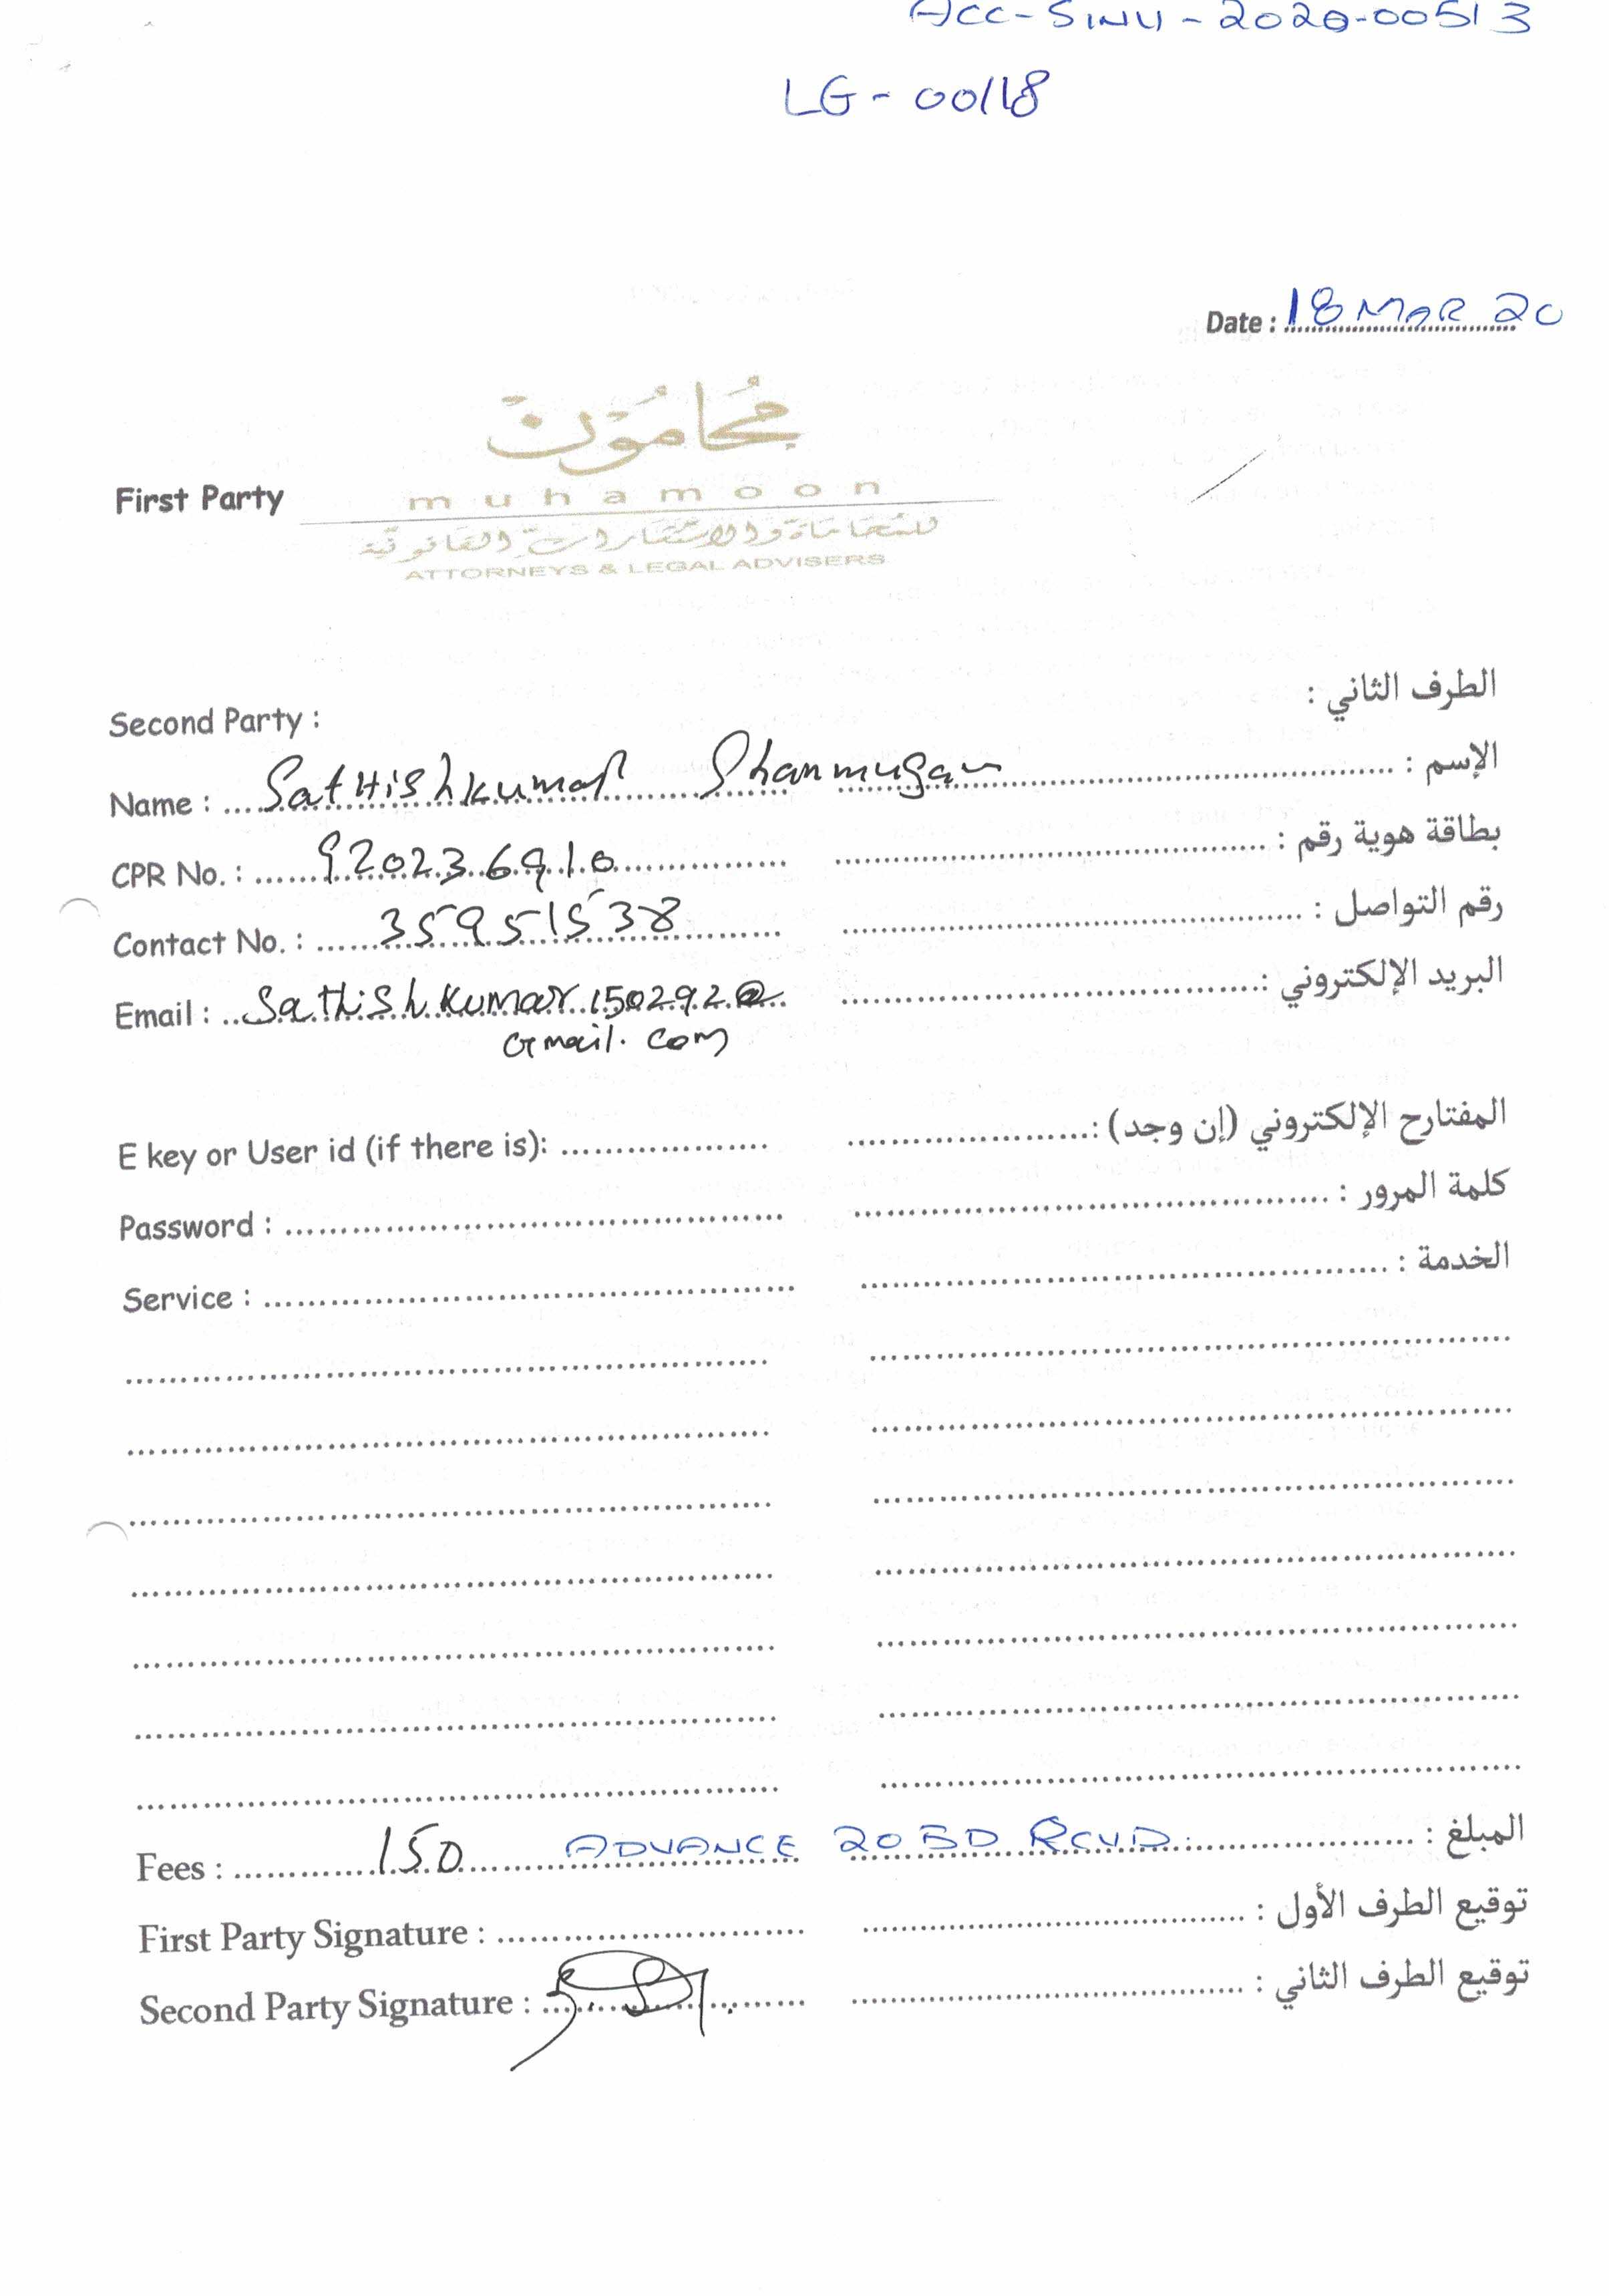 ACC-SINV-2020-00513
LG-00118
Date : 18 MAR 20
محامون
First Party
muhamoon
للمحاماة والاستشارات القانونية
ATTORNEYS & LEGAL ADVISERS
الطرف الثاني :
Second Party :
Name : Sathishkumar Shanmugam الإسم :
CPR No. : 920236910 بطاقة هوية رقم :
Contact No. : 35951538 رقم التواصل :
Email : Sathishkumar150292@ البريد الإلكتروني :
Gmail.com
E key or User id (if there is): المفتارح الإلكتروني (إن وجد) :
Password : كلمة المرور :
Service : الخدمة :
Fees : 150 ADVANCE 20 BD RCVD. المبلغ :
First Party Signature : توقيع الطرف الأول :
Second Party Signature : توقيع الطرف الثاني :